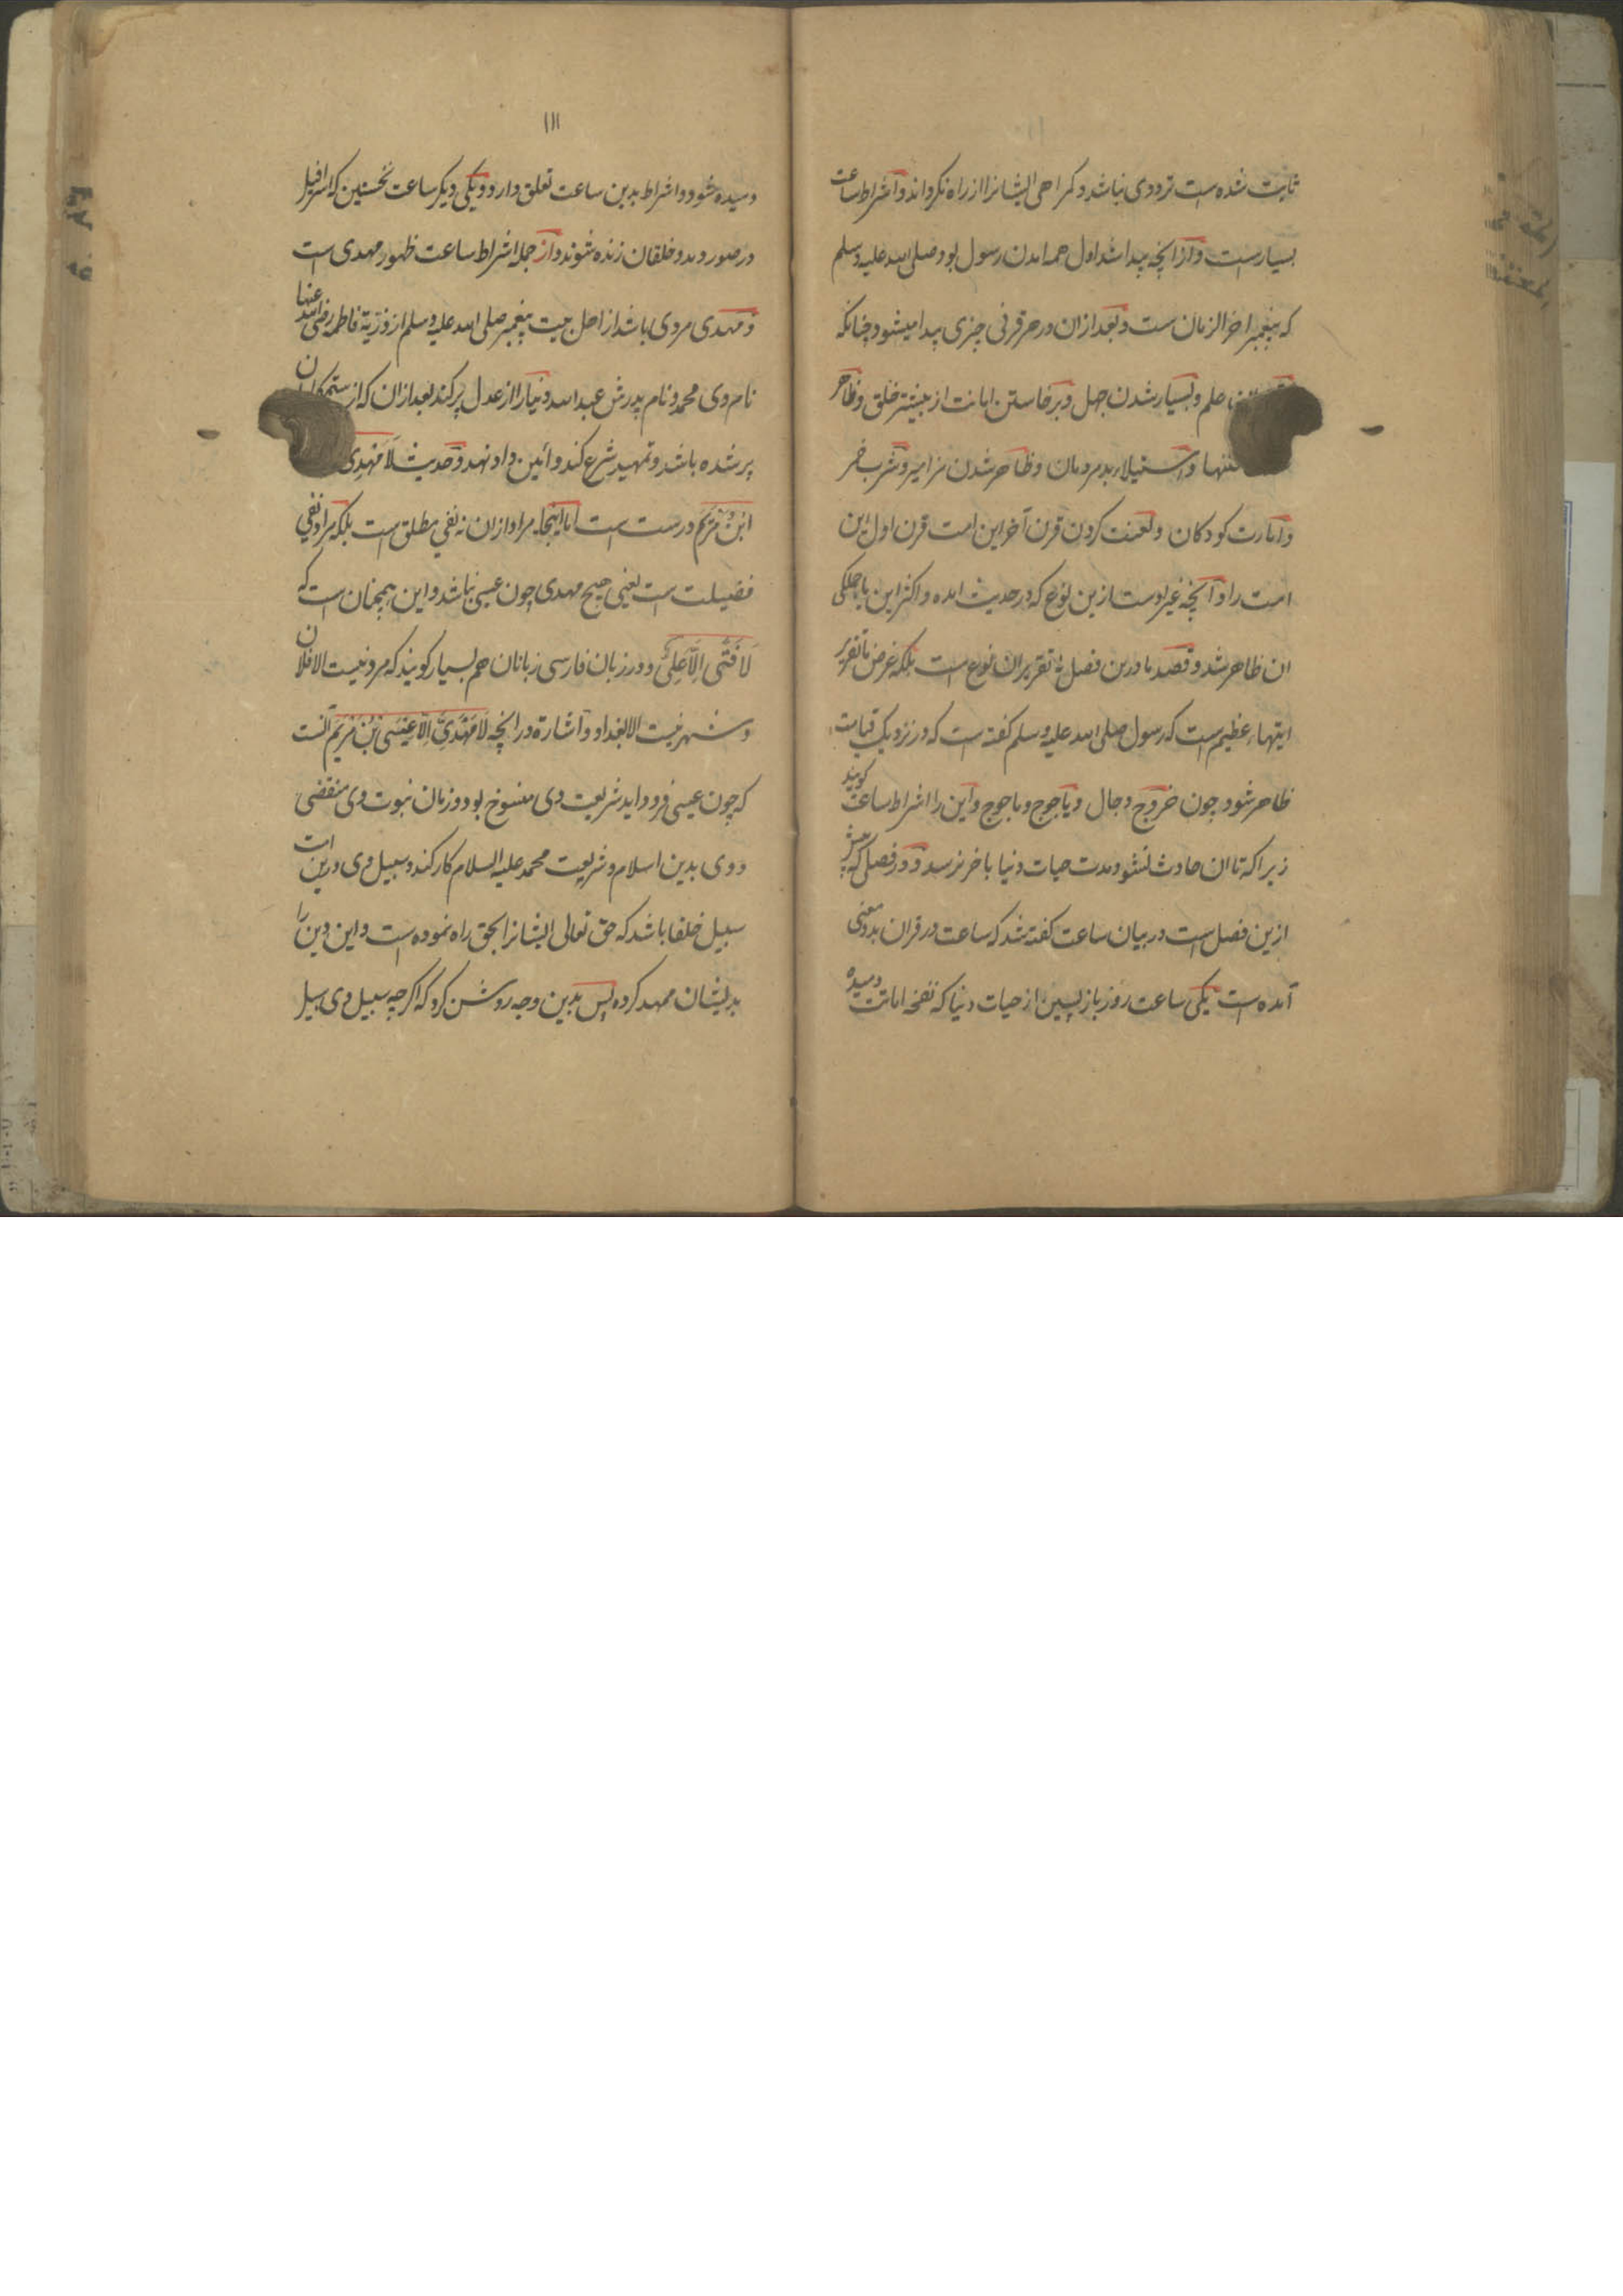 ثابت شده است ترددی نباشد و کمراهی ایشانرا از راه نکرداند و اشراط ساعت
بسیار است و از انچه پیدا شد اول همه امدن رسول بود صلی الله علیه وسلم
که پیغمبر اخر الزمان ست و بعد ازان در هر قرنی چیزی پیدا میشود چنانکه
علم و بسیار شدن جهل و برخاستن امانت از بیشتر خلق و ظاهر
فتنها و استیلاء بد مردمان و ظاهر شدن مزامیر و شرب خمر
و امارت کودکان و لعنت کردن قرن آخر این امت قرن اول این
امت را و آنچه غیر اوست ازین نوع که در حدیث امده و اکثر این یا جملکی
ان ظاهر شد و قصد ما درین فصل نه تقریر ان نوع است بلکه غرض ما تقریر
ایتهاء عظیم است که رسول صلی الله علیه وسلم کفته است که در نزدیک قیامت
ظاهر شود چون خروج دجال و یاجوج و ماجوج و این را اشراط ساعت کویند
زیراکه تا ان حادث نشود مدت حیات دنیا باخر نرسد و در فصلی که پیش
ازین فصل است در بیان ساعت کفته شد که ساعت در قران بدو معنی
آمده است یکی ساعت روز بازپسین از حیات دنیا که نفخه اماتت دمیده
۱۱۱
دمیده شود و اشراط بدین ساعت تعلق دارد و یکی دیکر ساعت نخستین که اسرافیل
در صور دمد و خلقان زنده شوند و از جمله اشراط ساعت ظهور مهدی است
و مهدی مردی باشد از اهل بیت پیغمبر صلی الله علیه وسلم از ذریة فاطمه رضی الله عنها
نام وی محمد و نام پدرش عبد الله و دنیا را از عدل پر کند بعد ازان که از ستمکاران
پر شده باشد و تمهید شرع کند و ائین داد نهد و حدیث لَا مَهْدِی
ابْنُ مَرْیَم درست است اما اینجا مراد ازان نه نفی مطلق است بلکه مراد نفی
فضیلت است یعنی هیچ مهدی چون عیسی نباشد و این همچنان است که
لَا فَتٰی اِلَّا عَلِیٌّ و در زبان فارسی زبانان هم بسیار کویند که مرد نیست الا فلان
و شهر نیست الا بغداد و اشارة در انچه لَا مَهْدِیَّ اِلَّا عِیْسَی بْنُ مَرْیَم آنست
که چون عیسی فرود اید شریعت وی منسوخ بود و زمان نبوت وی منقضی
و وی بدین اسلام و شریعت محمد علیه السلام کار کند و سبیل وی درین امت
سبیل خلفا باشد که حق تعالی ایشانرا بحق راه نموده است و این دین را
بدیشان ممهد کرده پس بدین وجه روشن کرد که اکرچه سبیل وی سبیل